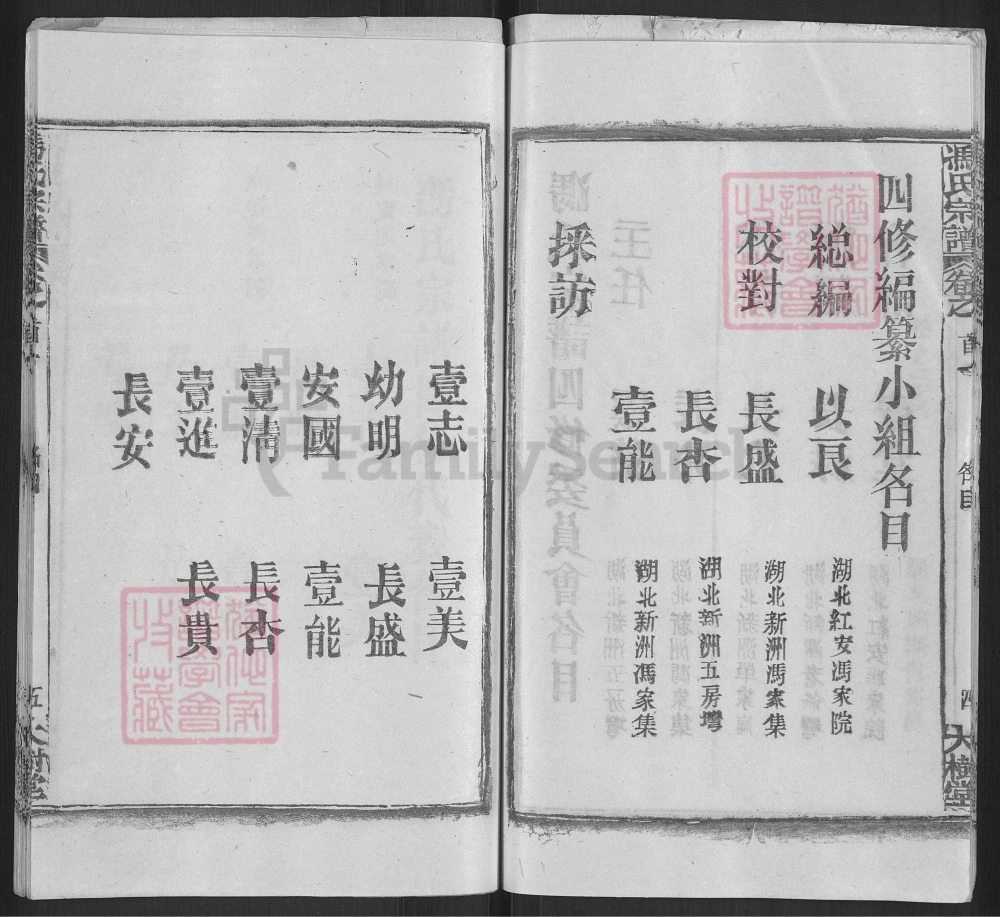 馮氏宗譜 卷之首 名目 四 大樹堂
四修編纂小組名目
総編 以良 湖北紅安馮家院
校對 長盛 湖北新洲馮家集
長杏 湖北新洲五房灣
壹能 湖北新洲馮家集
採訪
壹志 壹美
幼明 長盛
安國 壹能
壹清 長杏
壹進 長貴
長安
五
FamilySearch